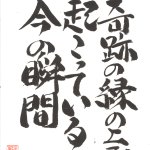 奇跡の縁の上に
起こっている
今の瞬間